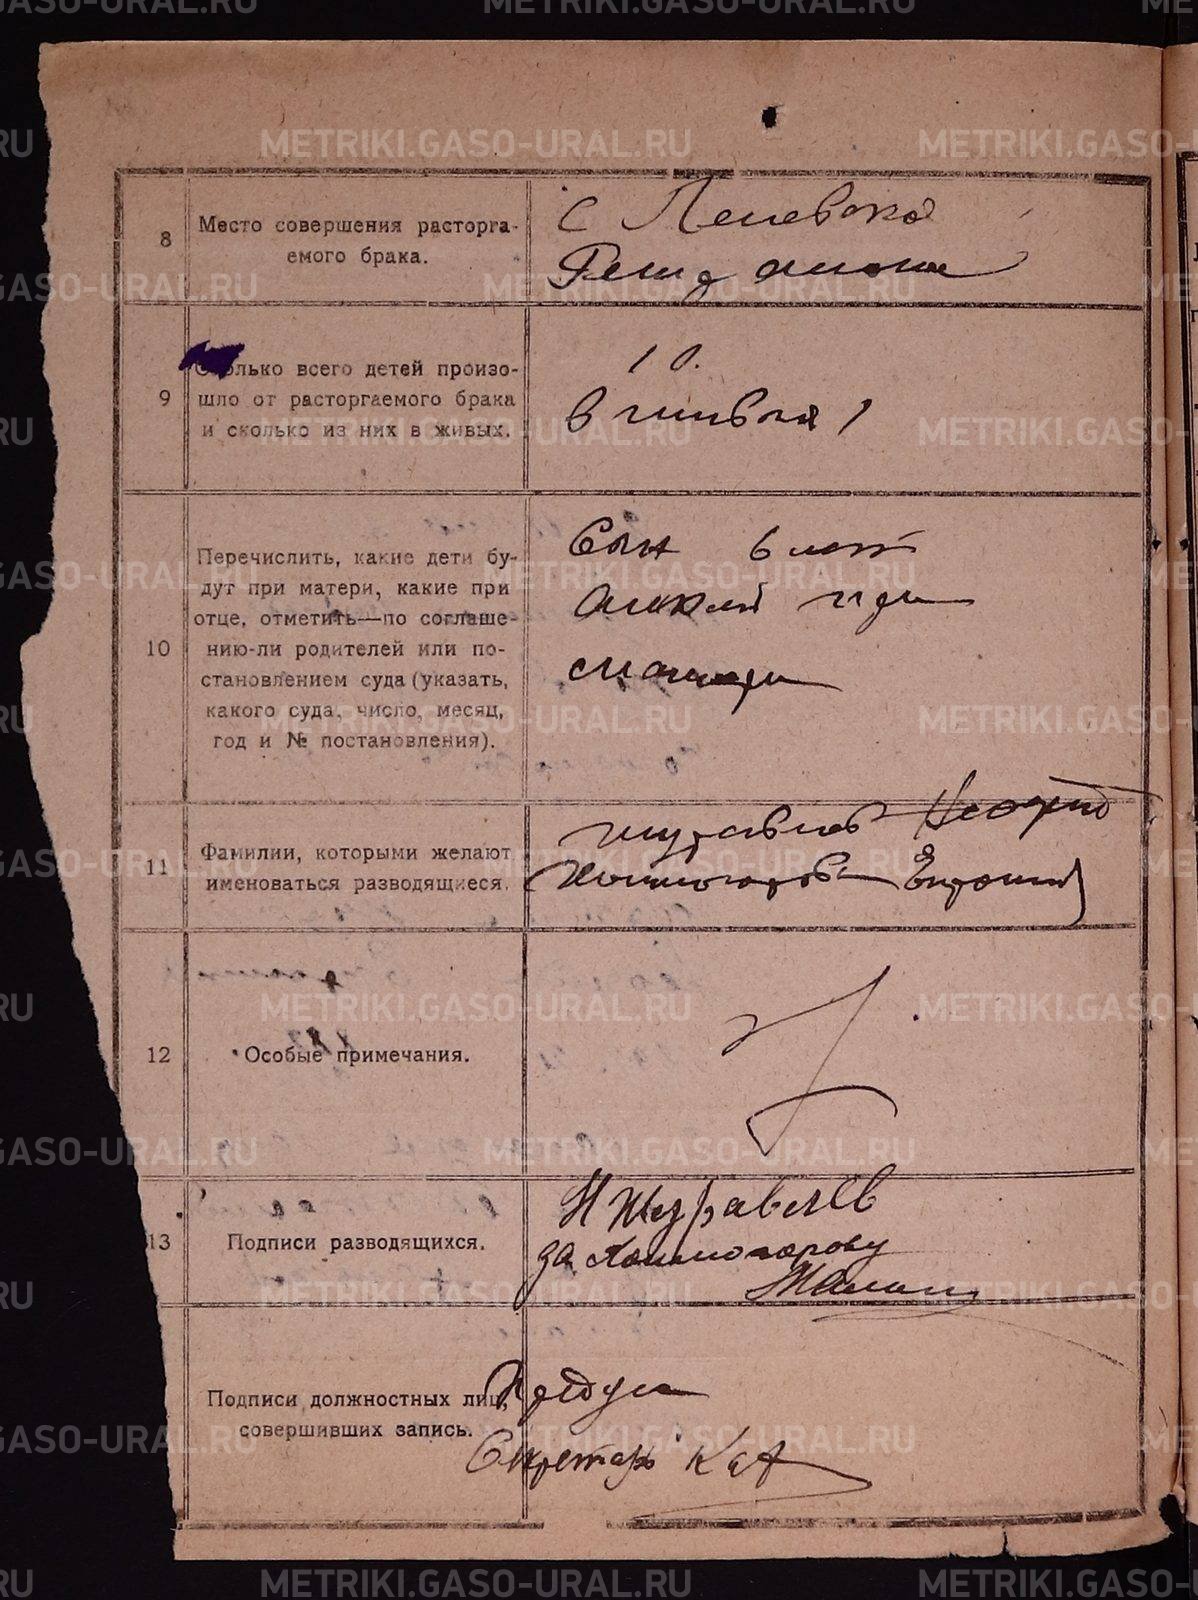 METRIKI.GASO-URAL.RU
8
Место совершения расторга-
емого брака.
с Леневское
9
Сколько всего детей произо-
шло от расторгаемого брака
и сколько из них в живых.
10.
в живых 1
10
Перечислить, какие дети бу-
дут при матери, какие при
отце, отметить—по соглаше-
нию-ли родителей или по-
становлением суда (указать,
какого суда, число, месяц,
год и № постановления).
Сын 6 лет
при
матери
11
Фамилии, которыми желают
именоваться разводящиеся.
Журавлев
Холмогорова
12
Особые примечания.
13
Подписи разводящихся.
Н Журавлев
за Холмогорову
Подписи должностных лиц,
совершивших запись.
Секретарь